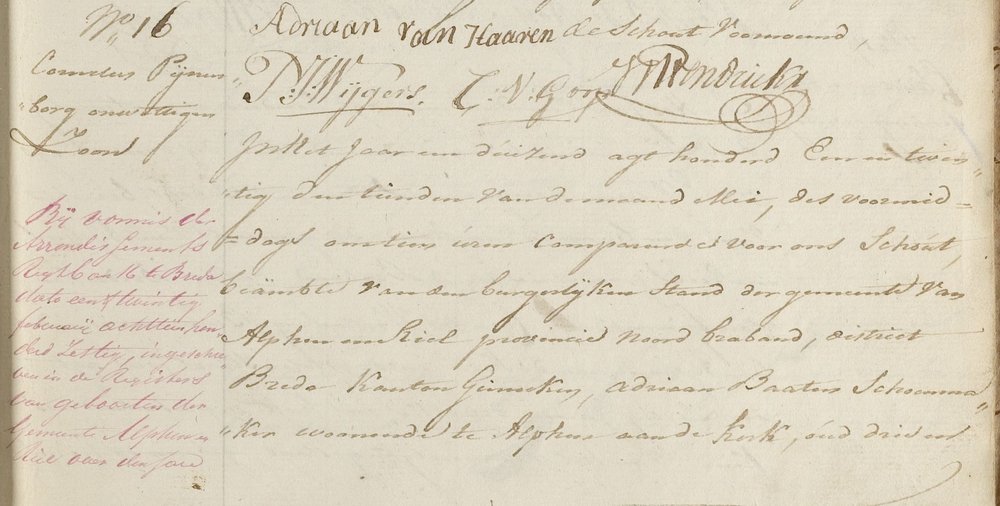 No 16
Cornelus Pijnen
borg onwettigen
Zoon
Bij vonnis der
Arrondissements
Regtbank te Breda
dato een & twintig
februarij achttien hon
derd Zestig, ingeschre
ven in de Registers
van geboorten der
Gemeente Alphen en
Riel over den jare
Adriaan van Haaren de Schout Voornoemd,
P: J: Wijgers. C: V: Gorp
In het Jaar een duizend agt honderd Een en twin
tig den tienden van de maand Mei, des voormid=
=dags om tien uren Compareerde voor ons Schout,
beämbte van den burgerlijken Stand der gemeente van
Alphen en Riel provincie Noord braband, district
Breda Kanton Ginneken, Adriaan Baaten Schoenma„
„ker woonende te Alphen aan de Kerk, oud drie en